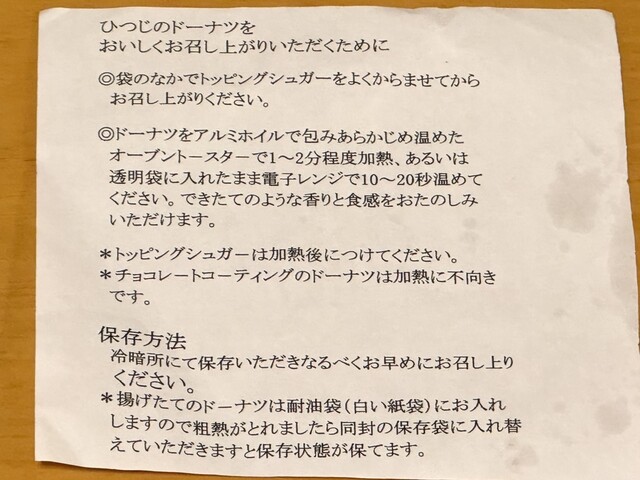 ひつじのドーナツを
おいしくお召し上がりいただくために
◎袋のなかでトッピングシュガーをよくからませてから
お召し上がりください。
◎ドーナツをアルミホイルで包みあらかじめ温めた
オーブントースターで1~2分程度加熱、あるいは
透明袋に入れたまま電子レンジで10~20秒温めて
ください。できたてのような香りと食感をおたのしみ
いただけます。
*トッピングシュガーは加熱後につけてください。
*チョコレートコーティングのドーナツは加熱に不向き
です。
保存方法
冷暗所にて保存いただきなるべくお早めにお召し上り
ください。
*揚げたてのドーナツは耐油袋(白い紙袋)にお入れ
しますので粗熱がとれましたら同封の保存袋に入れ替
えていただきますと保存状態が保てます。